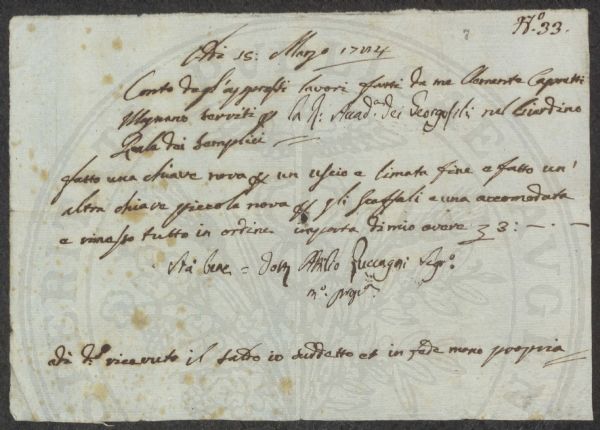 N.º 33.
Adi 15: Marzo 1784
Conto degl'appressi lavori fatti da me Clemente Capretti
Magnano serviti p la R: Accad.ª dei Georgofili nel Giardino
Reale dei Semplici
fatto una chiave nova p un uscio e limata fine e fatto un'
altra chiave piccola nova p gli scaffali e una accomodata
e rimesso tutto in ordine importa di mio avere 3:—.—
Sta bene = Dott Attilio Zuccagni Segr.º
m.º prop.ª
adì d.º ricevuto il saldo io suddetto et in fede mano propria